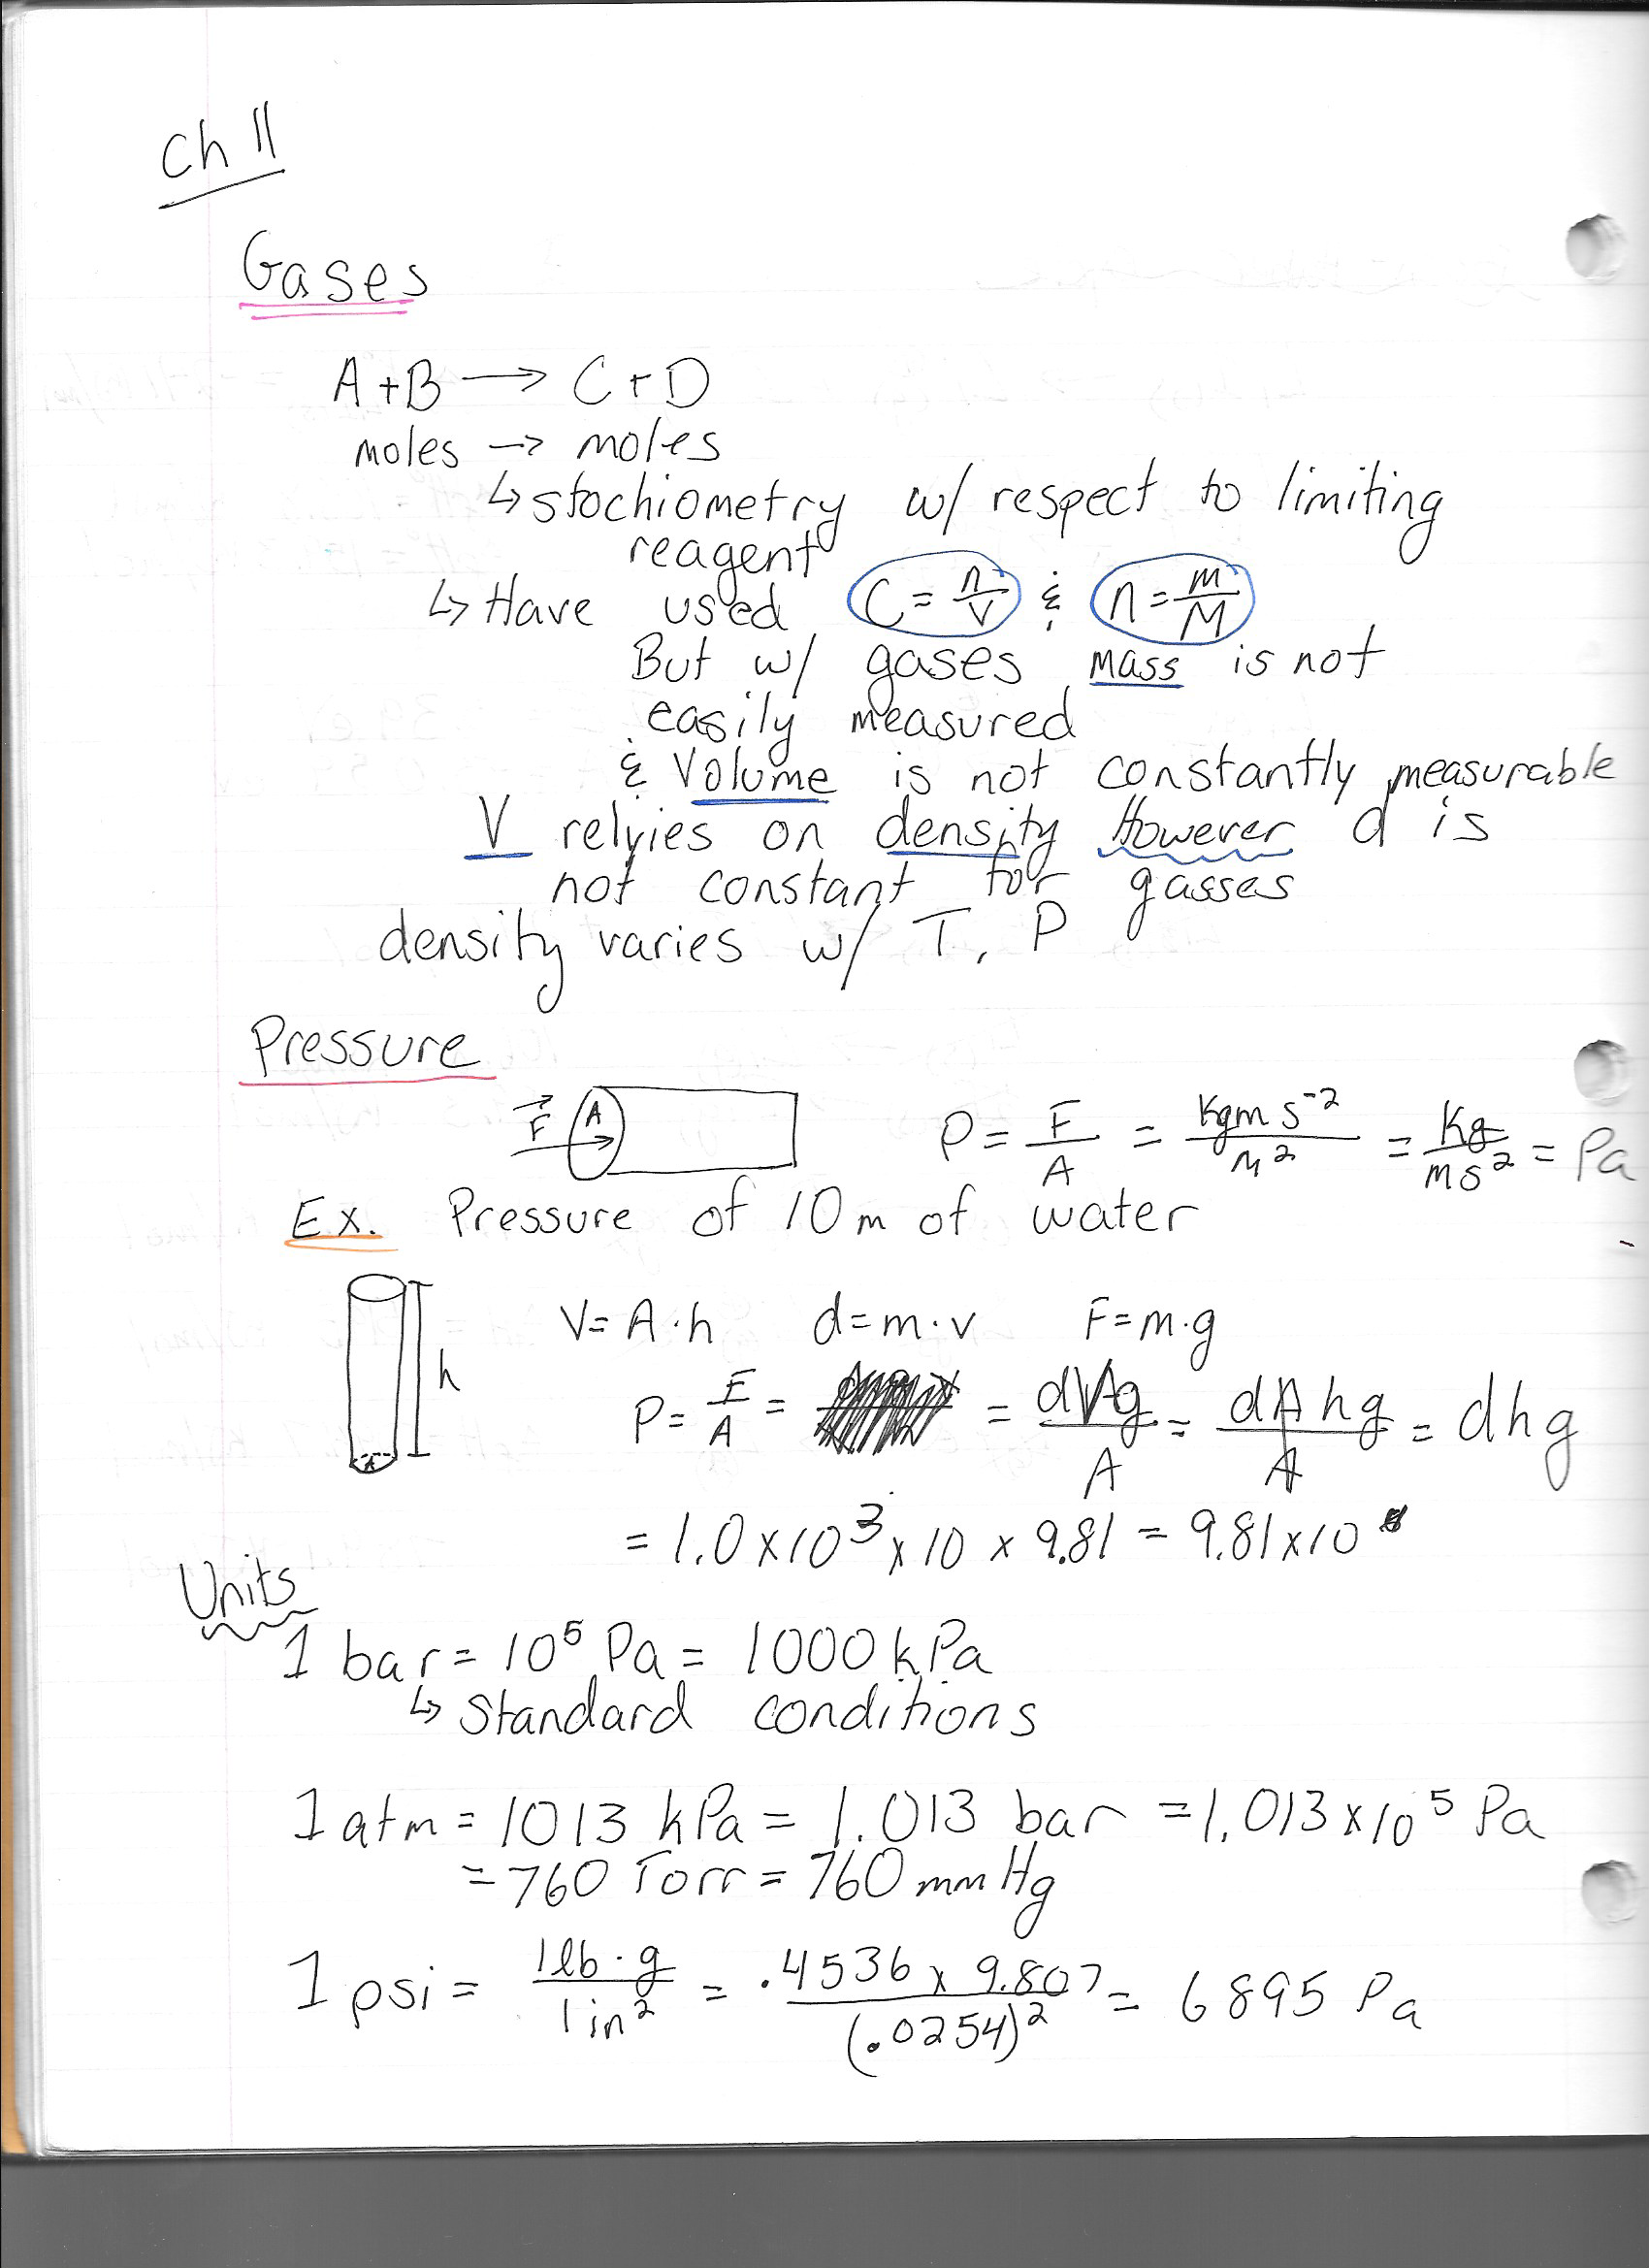 Ch 11
Gases
A + B → C + D
moles → moles
↳ stochiometry w/ respect to limiting
reagent
↳ Have used C = n/V & n = m/M
But w/ gases mass is not
easily measured
& Volume is not constantly measurable
V relyies on density However d is
not constant for gasses
density varies w/ T, P
Pressure
F A P = F/A = kgm s⁻²/m² = kg/ms² = Pa
Ex. Pressure of 10 m of water
V = A·h d = m·v F = m·g
h
P = F/A = = dVg/A = dAhg/A = dhg
A
= 1.0 x 10³ x 10 x 9.81 = 9.81 x 10
Units
1 bar = 10⁵ Pa = 1000 kPa
↳ Standard conditions
1 atm = 1013 kPa = 1.013 bar = 1.013 x 10⁵ Pa
= 760 Torr = 760 mm Hg
1 psi = 1lb·g/1in² = .4536 x 9.807/(.0254)² = 6895 Pa